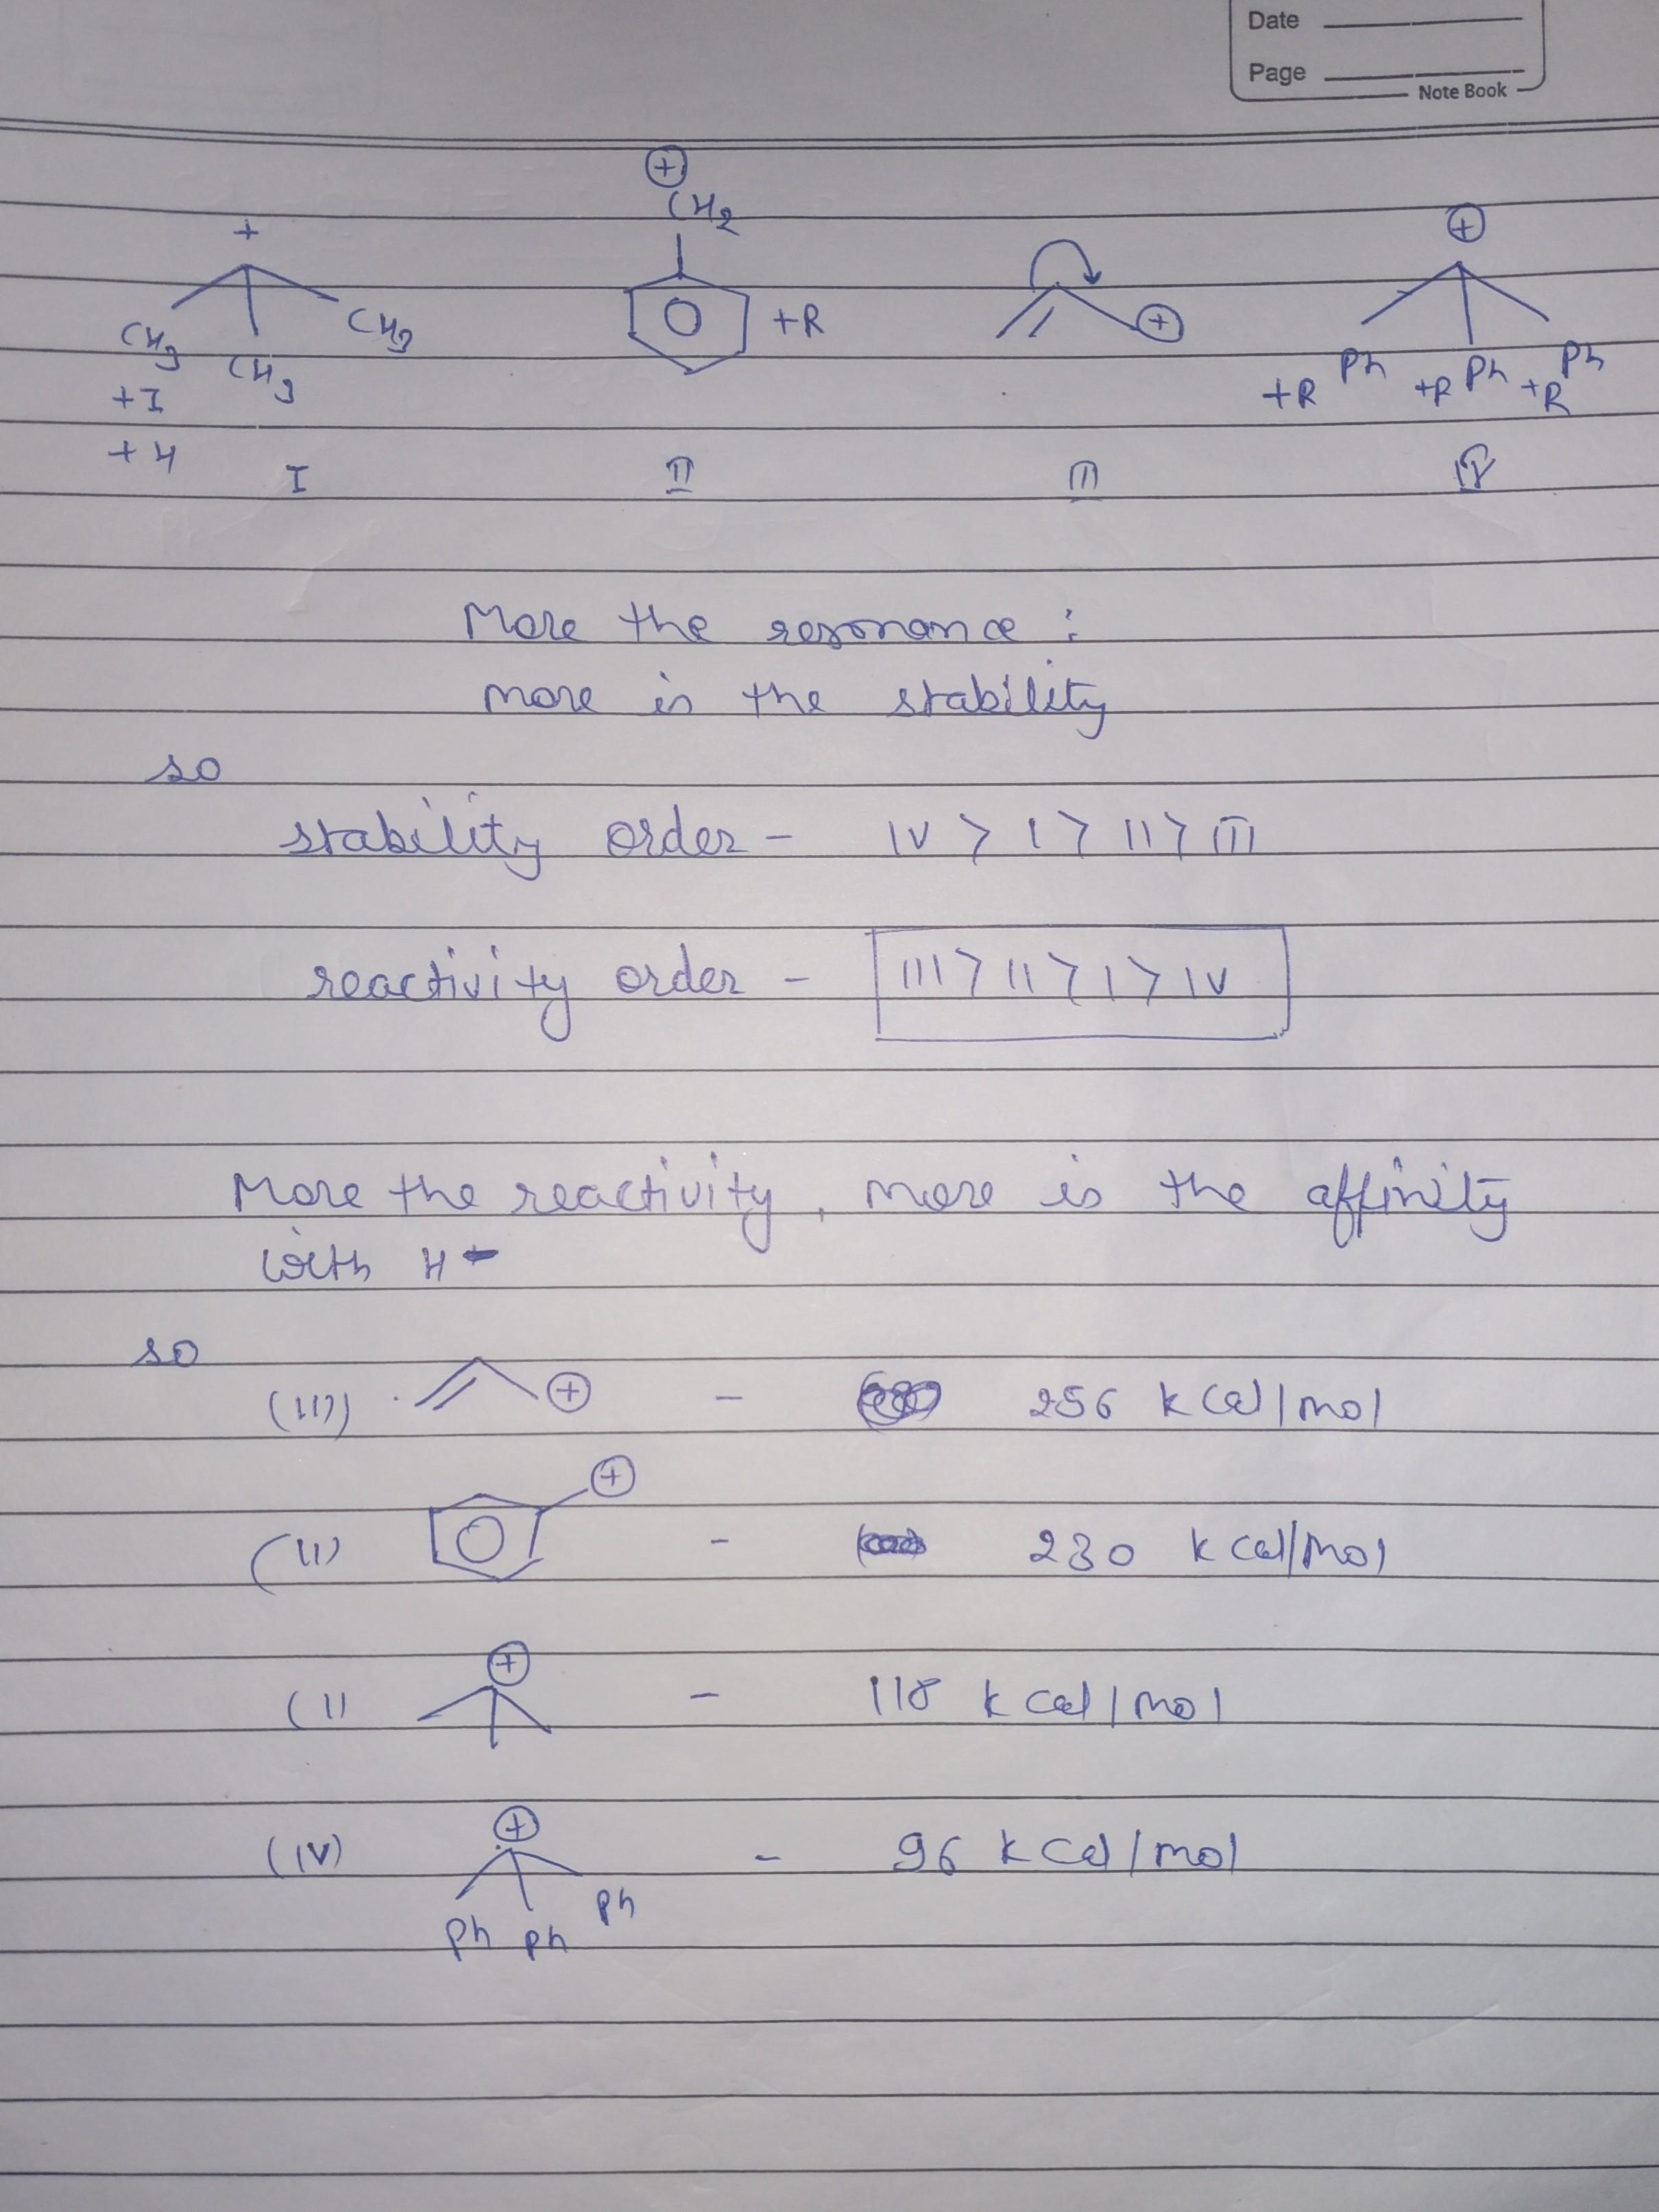 Date
Page
Note Book
⊕
CH2
+
⊕
CH3
CH3
CH3
+R
⊕
Ph
Ph
Ph
+I
+R
+R
+R
+H
I
II
III
IV
More the resonance :
more is the stability
so
stability order - IV > I > II > III
reactivity order - III > II > I > IV
More the reactivity, more is the affinity
with H-
so
(III) ⊕ - 256 kcal/mol
⊕
(II) - 230 kcal/mol
⊕
(I - 118 kcal/mol
⊕
(IV) - 96 kcal/mol
Ph Ph Ph